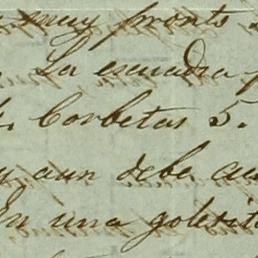 muy pronto
La escuadra
Corbetas 5.
aun debe au
En una goletita